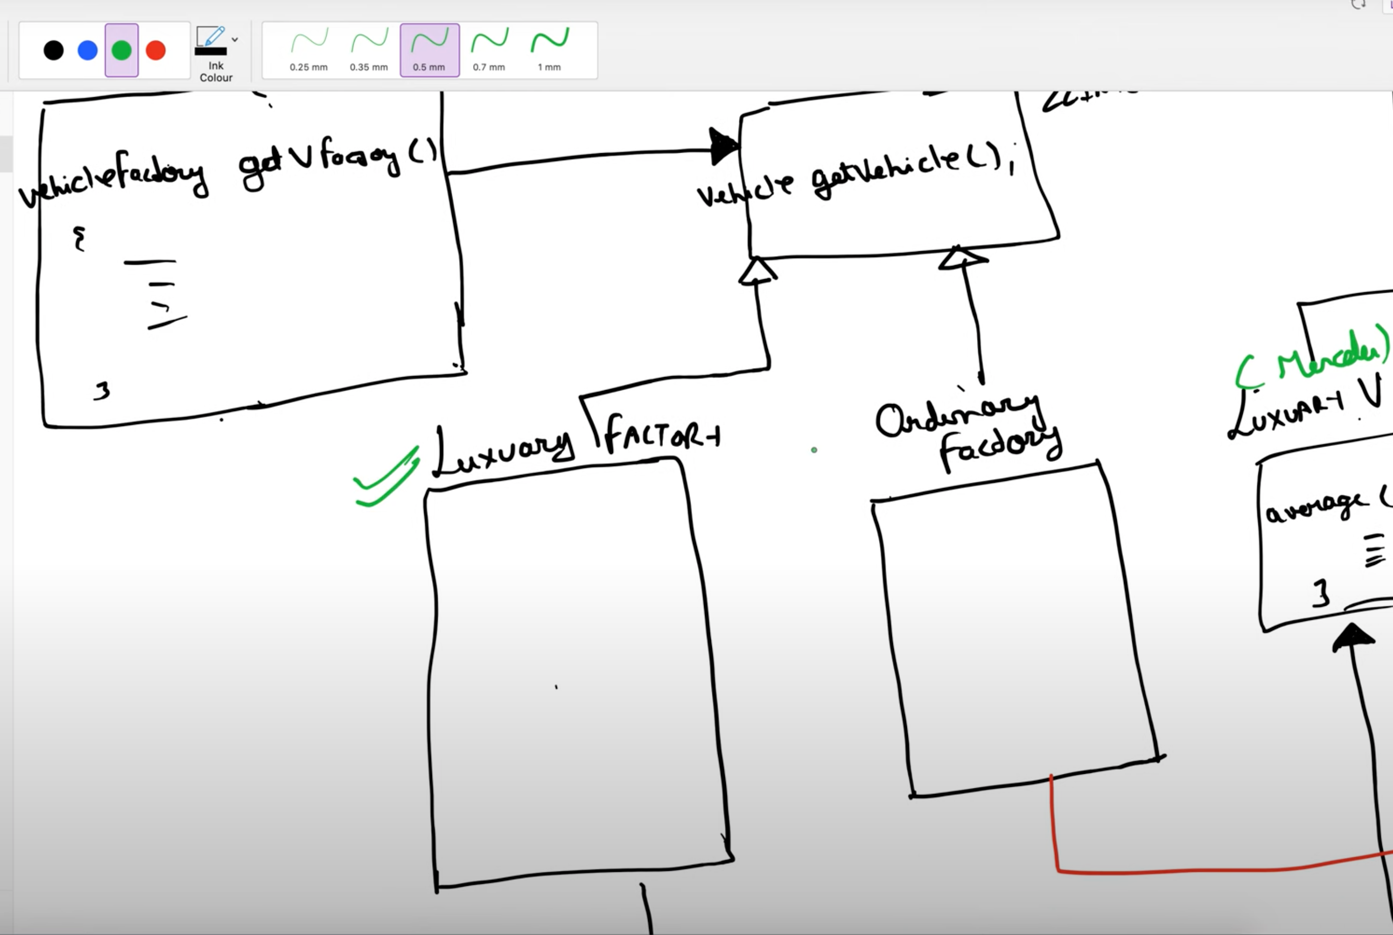 Ink
Colour
0.25 mm
0.35 mm
0.5 mm
0.7 mm
1 mm
vehiclefactory getVfactory()
{
}
Vehicle getVehicle();
Luxuary FACTORY
Ordinary
factory
(Mercedes)
LUXUARY V
average (
}